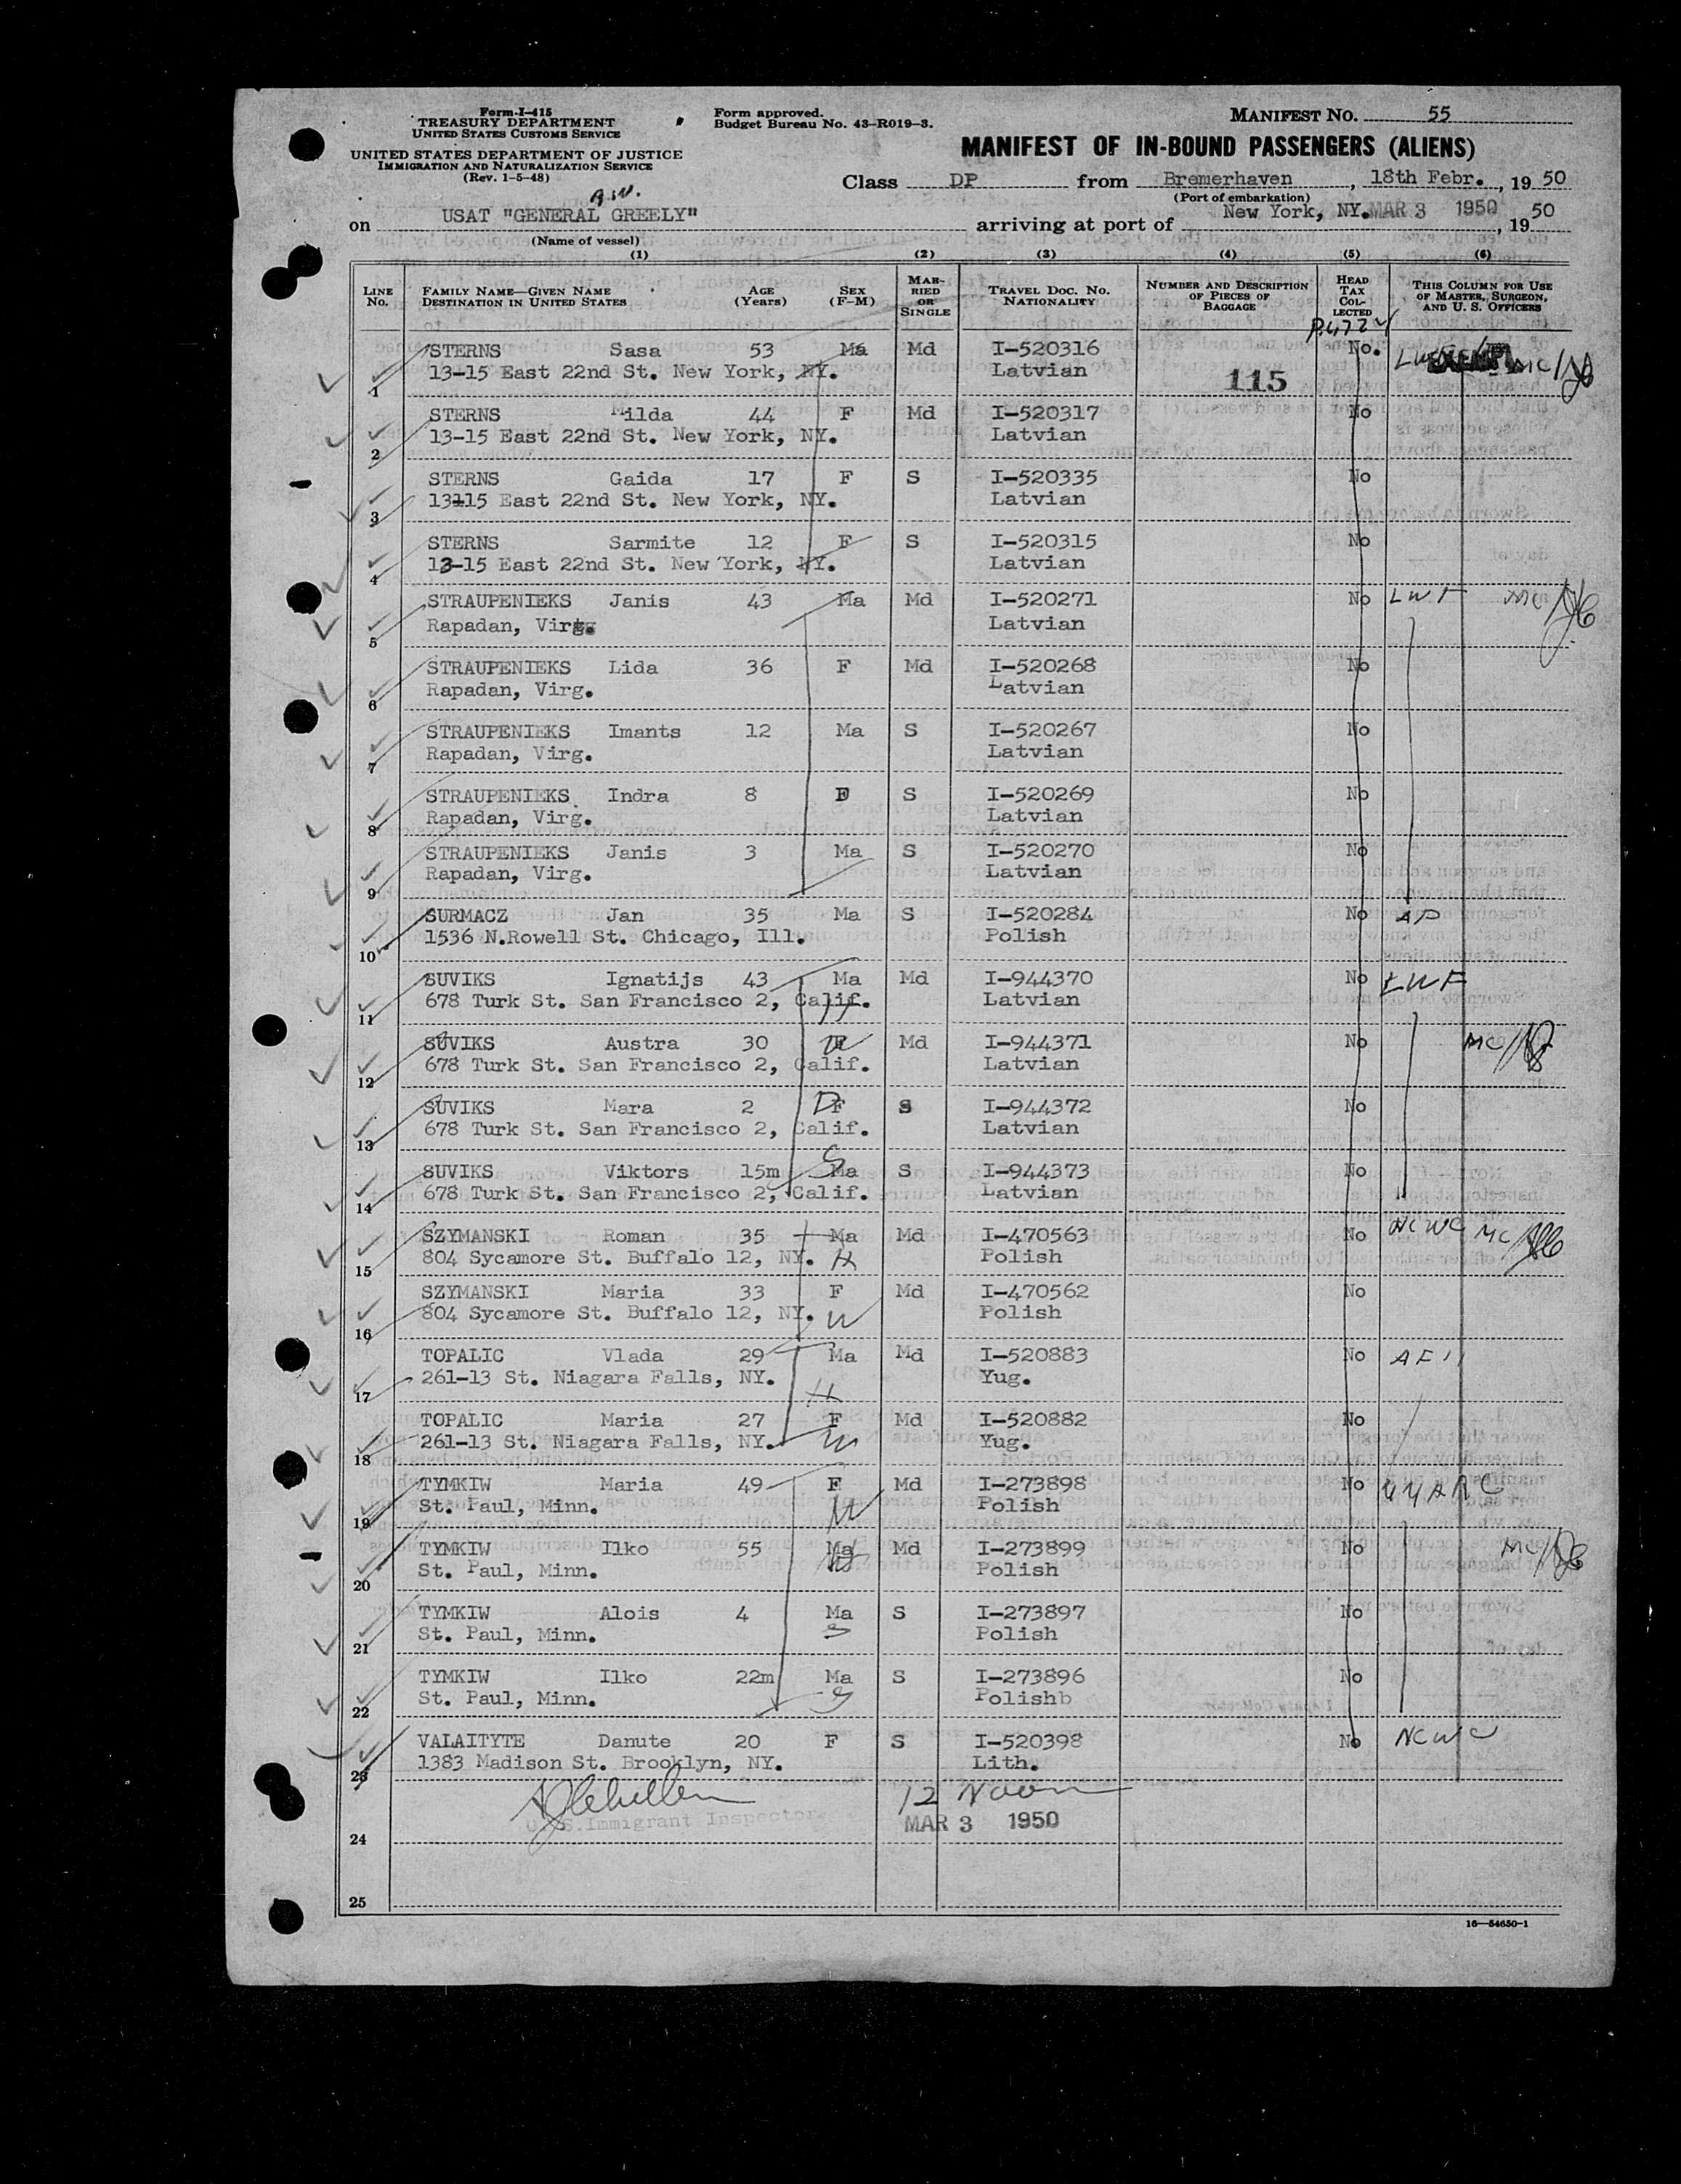 Form I-415
TREASURY DEPARTMENT
UNITED STATES CUSTOMS SERVICE
UNITED STATES DEPARTMENT OF JUSTICE
IMMIGRATION AND NATURALIZATION SERVICE
(Rev. 1-5-48)
Form approved.
Budget Bureau No. 43-R019-3.
MANIFEST NO. 55
MANIFEST OF IN-BOUND PASSENGERS (ALIENS)
Class DP from Bremerhaven, 18th Febr., 19 50
(Port of embarkation)
on USAT "GENERAL GREELY" arriving at port of New York, NY. MAR 3 1950, 19 50
(Name of vessel)
(1) (2) (3) (4) (5) (6)
LINE No. FAMILY NAME—GIVEN NAME DESTINATION IN UNITED STATES AGE (Years) SEX (F-M) MARRIED OR SINGLE TRAVEL DOC. NO. NATIONALITY NUMBER AND DESCRIPTION OF PIECES OF BAGGAGE HEAD TAX COLLECTED THIS COLUMN FOR USE OF MASTER, SURGEON, AND U. S. OFFICERS
STERNS Sasa 53 Ma Md I-520316 No. LWF MC
1 13-15 East 22nd St. New York, NY. Latvian 115
STERNS Milda 44 F Md I-520317 No
2 13-15 East 22nd St. New York, NY. Latvian
STERNS Gaida 17 F S I-520335 No
3 13-15 East 22nd St. New York, NY. Latvian
STERNS Sarmite 12 F S I-520315 No
4 13-15 East 22nd St. New York, NY. Latvian
STRAUPENIEKS Janis 43 Ma Md I-520271 No LWF MC
5 Rapadan, Virg. Latvian
STRAUPENIEKS Lida 36 F Md I-520268 No
6 Rapadan, Virg. Latvian
STRAUPENIEKS Imants 12 Ma S I-520267 No
7 Rapadan, Virg. Latvian
STRAUPENIEKS Indra 8 F S I-520269 No
8 Rapadan, Virg. Latvian
STRAUPENIEKS Janis 3 Ma S I-520270 No
9 Rapadan, Virg. Latvian
SURMACZ Jan 35 Ma S I-520284 No
10 1536 N.Rowell St. Chicago, Ill. Polish
SUVIKS Ignatijs 43 Ma Md I-944370 No LWF
11 678 Turk St. San Francisco 2, Calif. Latvian H
SUVIKS Austra 30 F Md I-944371 No MC
12 678 Turk St. San Francisco 2, Calif. Latvian
SUVIKS Mara 2 D F S I-944372 No
13 678 Turk St. San Francisco 2, Calif. Latvian
SUVIKS Viktors 15m S Ma S I-944373 No
14 678 Turk St. San Francisco 2, Calif. Latvian
SZYMANSKI Roman 35 Ma Md I-470563 No NCWC MC
15 804 Sycamore St. Buffalo 12, NY. H Polish
SZYMANSKI Maria 33 F Md I-470562 No
16 804 Sycamore St. Buffalo 12, NY. W Polish
TOPALIC Vlada 29 Ma Md I-520883 No
17 261-13 St. Niagara Falls, NY. H Yug.
TOPALIC Maria 27 F Md I-520882 No
18 261-13 St. Niagara Falls, NY. W Yug.
TYMKIW Maria 49 F Md I-273898 No UUARC
19 St. Paul, Minn. W Polish
TYMKIW Ilko 55 Ma Md I-273899 No MC
20 St. Paul, Minn. Polish
TYMKIW Alois 4 Ma S I-273897 No
21 St. Paul, Minn. S Polish
TYMKIW Ilko 22m Ma S I-273896 No
22 St. Paul, Minn. S Polishb
VALAITYTE Danute 20 F S I-520398 No NCWC
23 1383 Madison St. Brooklyn, NY. Lith.
12 Noon
U. S. Immigrant Inspector MAR 3 1950
24
25
16—54650-1